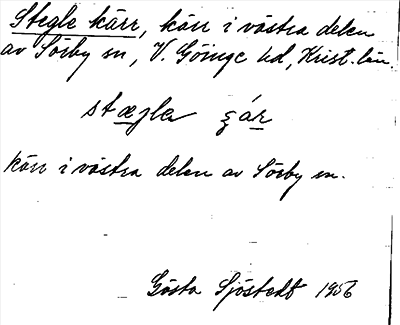 Stegle kärr, kärr i västra delen
av Sörby sn, V. Göinge hd, Krist. län.
stægla ʒár
kärr i västra delen av Sörby sn.
Gösta Sjöstedt 1956